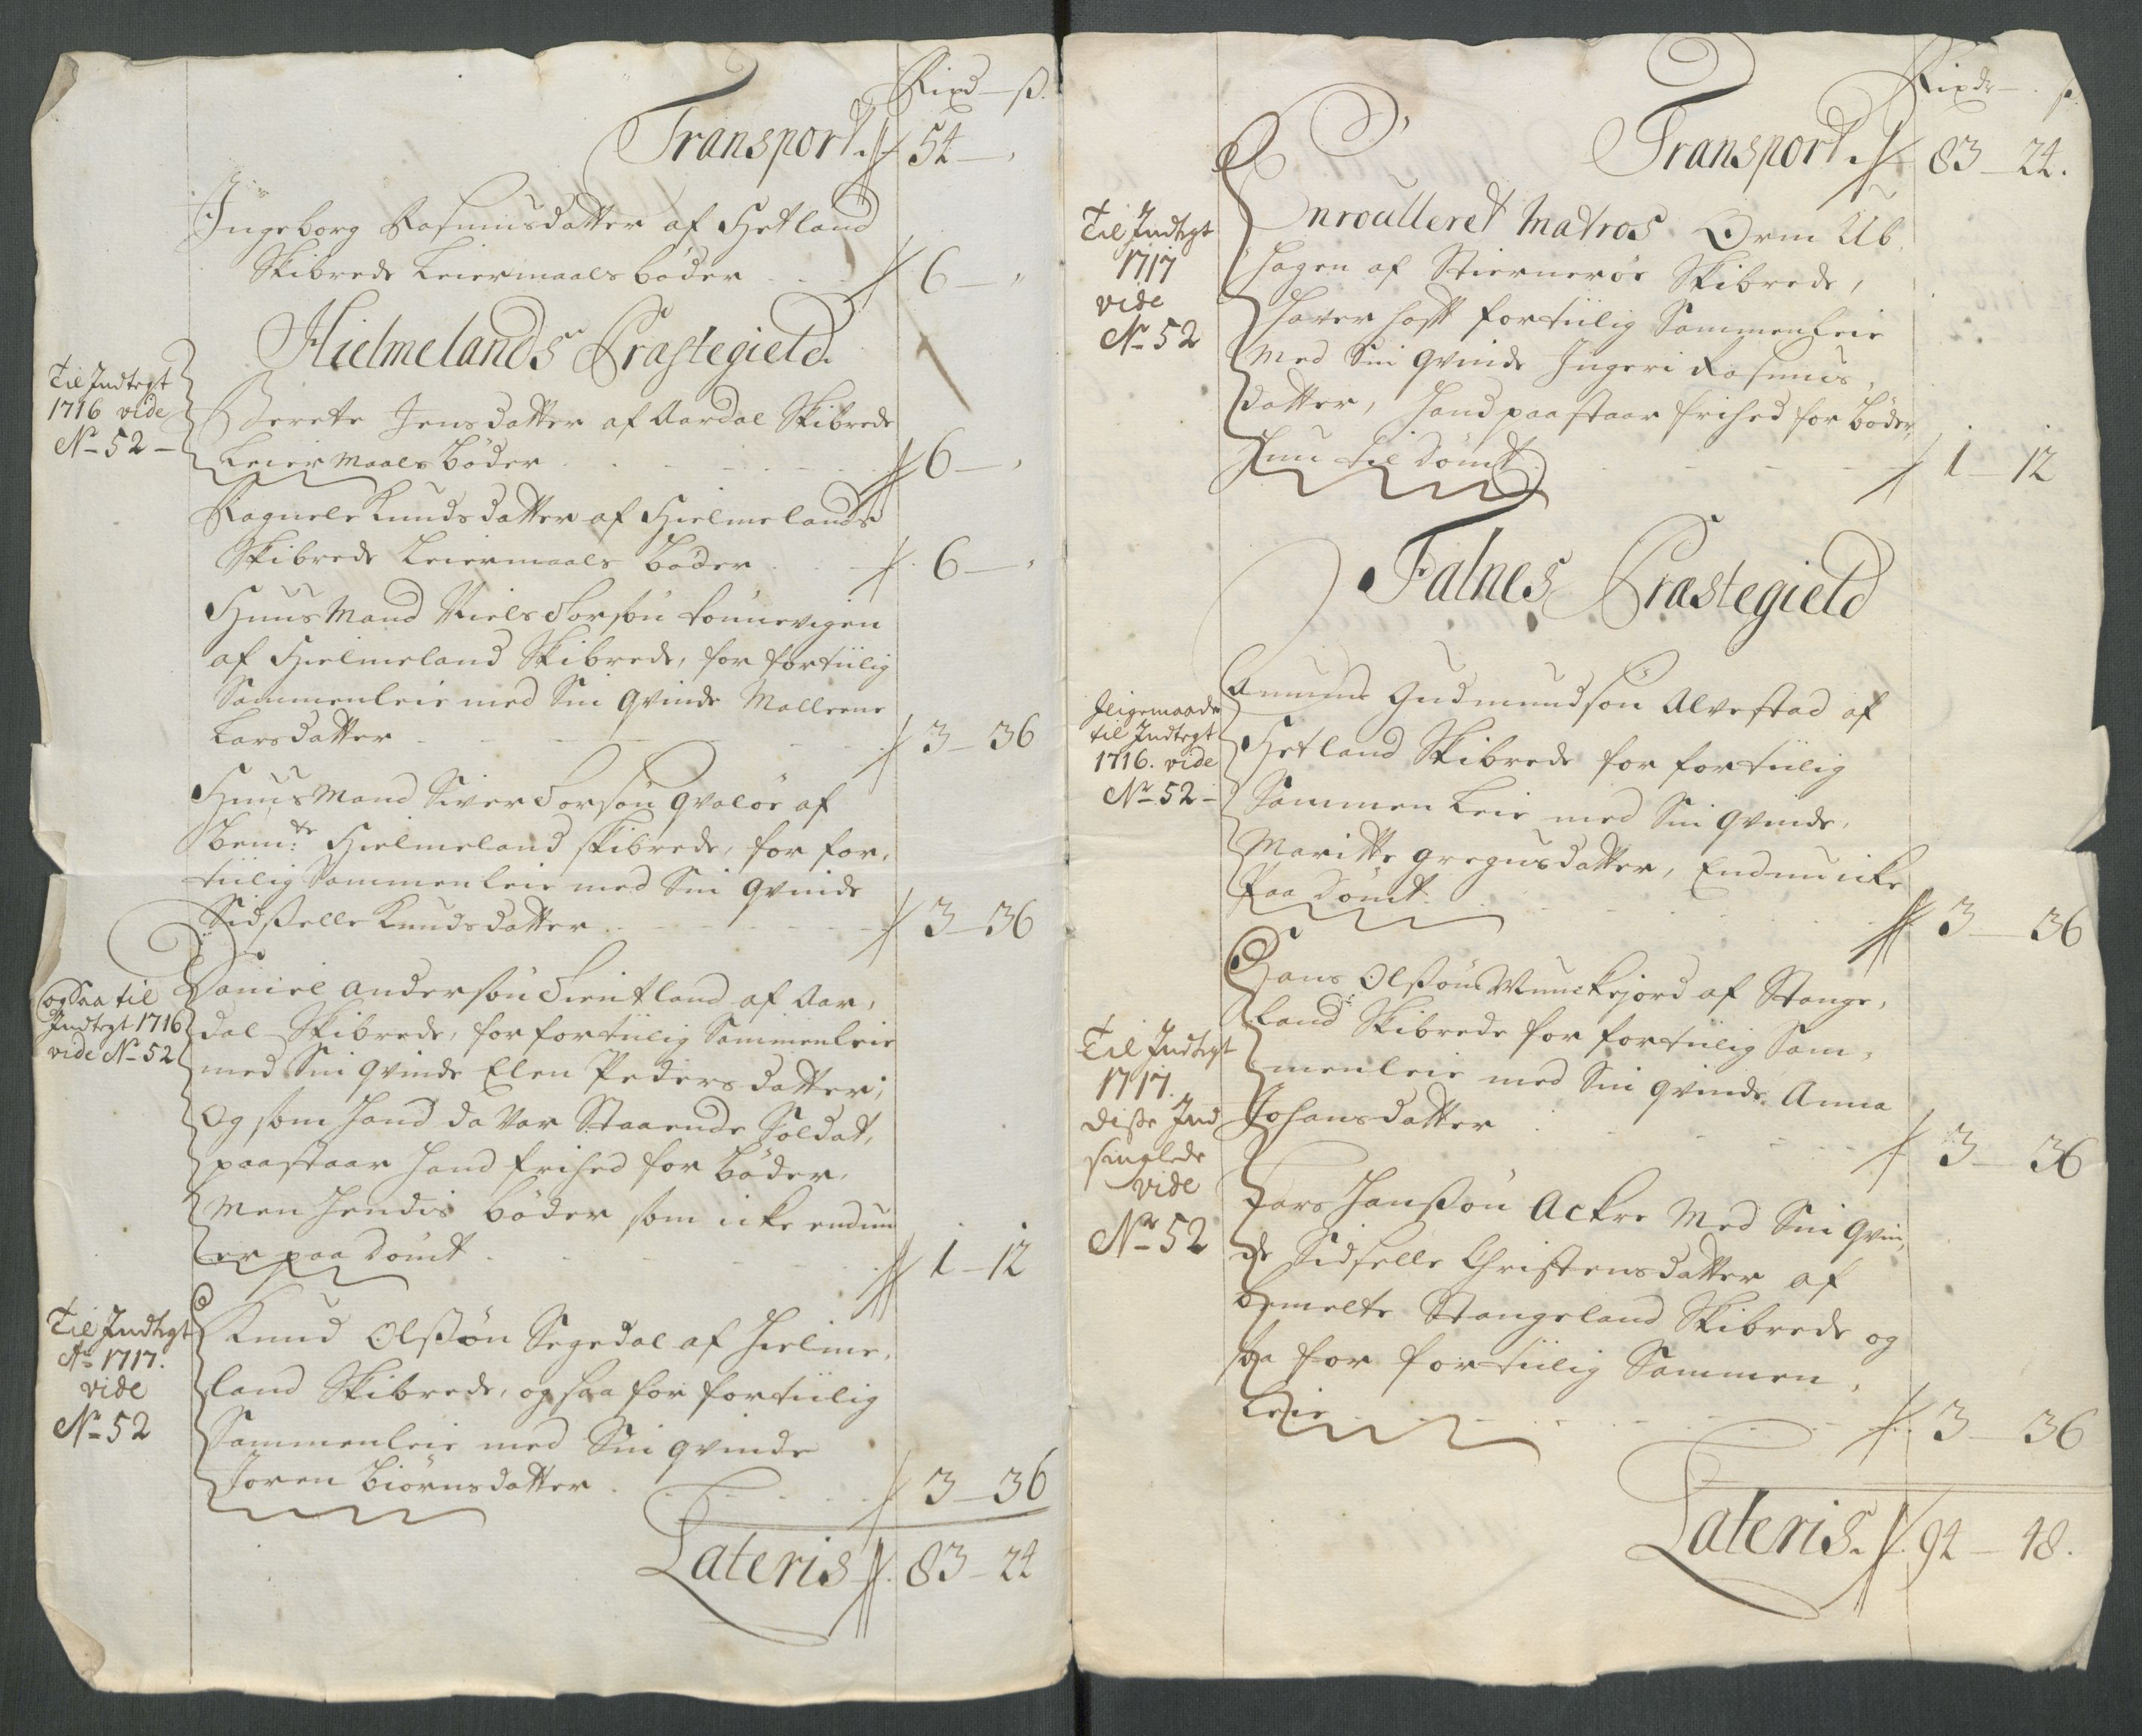 Rixd — ß.
Transport. 54 — ,
Ingeborg Rasmusdatter af Hetland
Skibrede Leiermaals bøder 6 — ,
Hielmelands Præstegield.
Til Indtegt
1716 vide
No 52 —
Berete Jensdatter af Aardal Skibrede
Leiermaals bøder 6 — ,
Ragnele Knudsdatter af Hielmelands
Skibrede Leiermaals bøder 6 — ,
Huus Mand Niels Torsøn Tønnevigen
af Hielmeland Skibrede, for fortiilig
Sammenleie med Sin qvinde Malleene
Larsdatter 3 — 36
Huus Mand Siver Torsøn Qvaløe af
bem:te Hielmeland skibrede, for for,
tiilig Sammenleie med Sin qvinde
Sidsselle Knudsdatter 3 — 36
ogsaa til
Indtegt 1716
vide No 52
Daniel Andersøn af Aar,
dal Skibrede, for fortiilig Sammenleie
med Sin qvinde Elen Pedersdatter,
Og som hand da var Staaende Soldat,
paastaar hand frihed for bøder,
Men hendis bøder som icke endnu
er paa dømt 1 — 12
Til Indtegt
Ao 1717.
vide
No 52
Knud Olssøn Segedal af Hielme,
land Skibrede, og saa for fortiilig
Sammenleie med Sin qvinde
Joren Biørnsdatter 3 — 36
Lateris 83 — 24
Rixdr — ß.
Transport. 83 — 24.
Til Indtegt
1717
vide
No 52
Enroulleret Matros Orm Ub,
hagen af Stiernerøe Skibrede,
haver hafft fortiilig Sammenleie
Med Sin qvinde Ingeri Rasmus,
datter, hand paastaar frihed for bøder,
hun til dømt 1 — 12
Falnes Præstegield
Iligemaade
til Indtegt
1716. vide
No 52 —
Amund Gudmundsøn Alvestad af
Hetland Skibrede for fortiilig
Sammen Leie med Sin qvinde,
Maritte Gregusdatter, Endnu icke
Paa dømt. 3 — 36
Til Indtegt
1717.
disse Ind
singlede
vide
No 52
Hans Olssøn Munckejord af Stange,
land Skibrede for fortiilig Sam,
menleie med Sin qvinde Anna
Johansdatter 3 — 36
Lars Hanssøn Ackre Med Sin Qvin,
de Sidselle Christensdatter af
bemelte Stangeland Skibrede og
saa for fortiilig Sammen,
Leie 3 — 36
Lateris. 94 — 48.